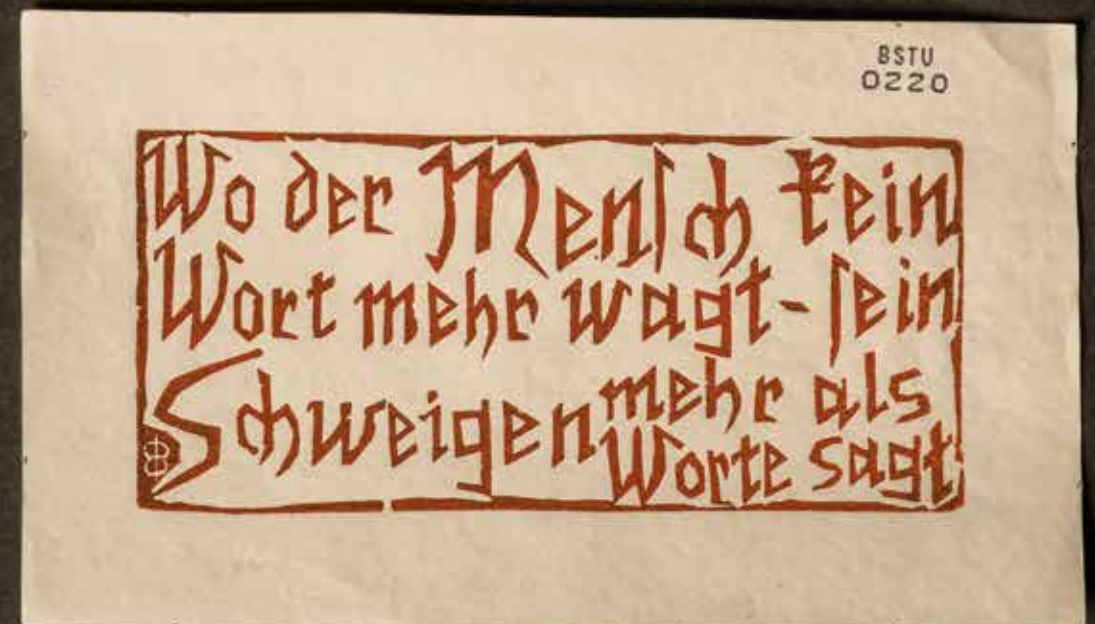 BSTU
0220
Wo der Menſch kein
Wort mehr wagt - ſein
Schweigen mehr als
Worte sagt